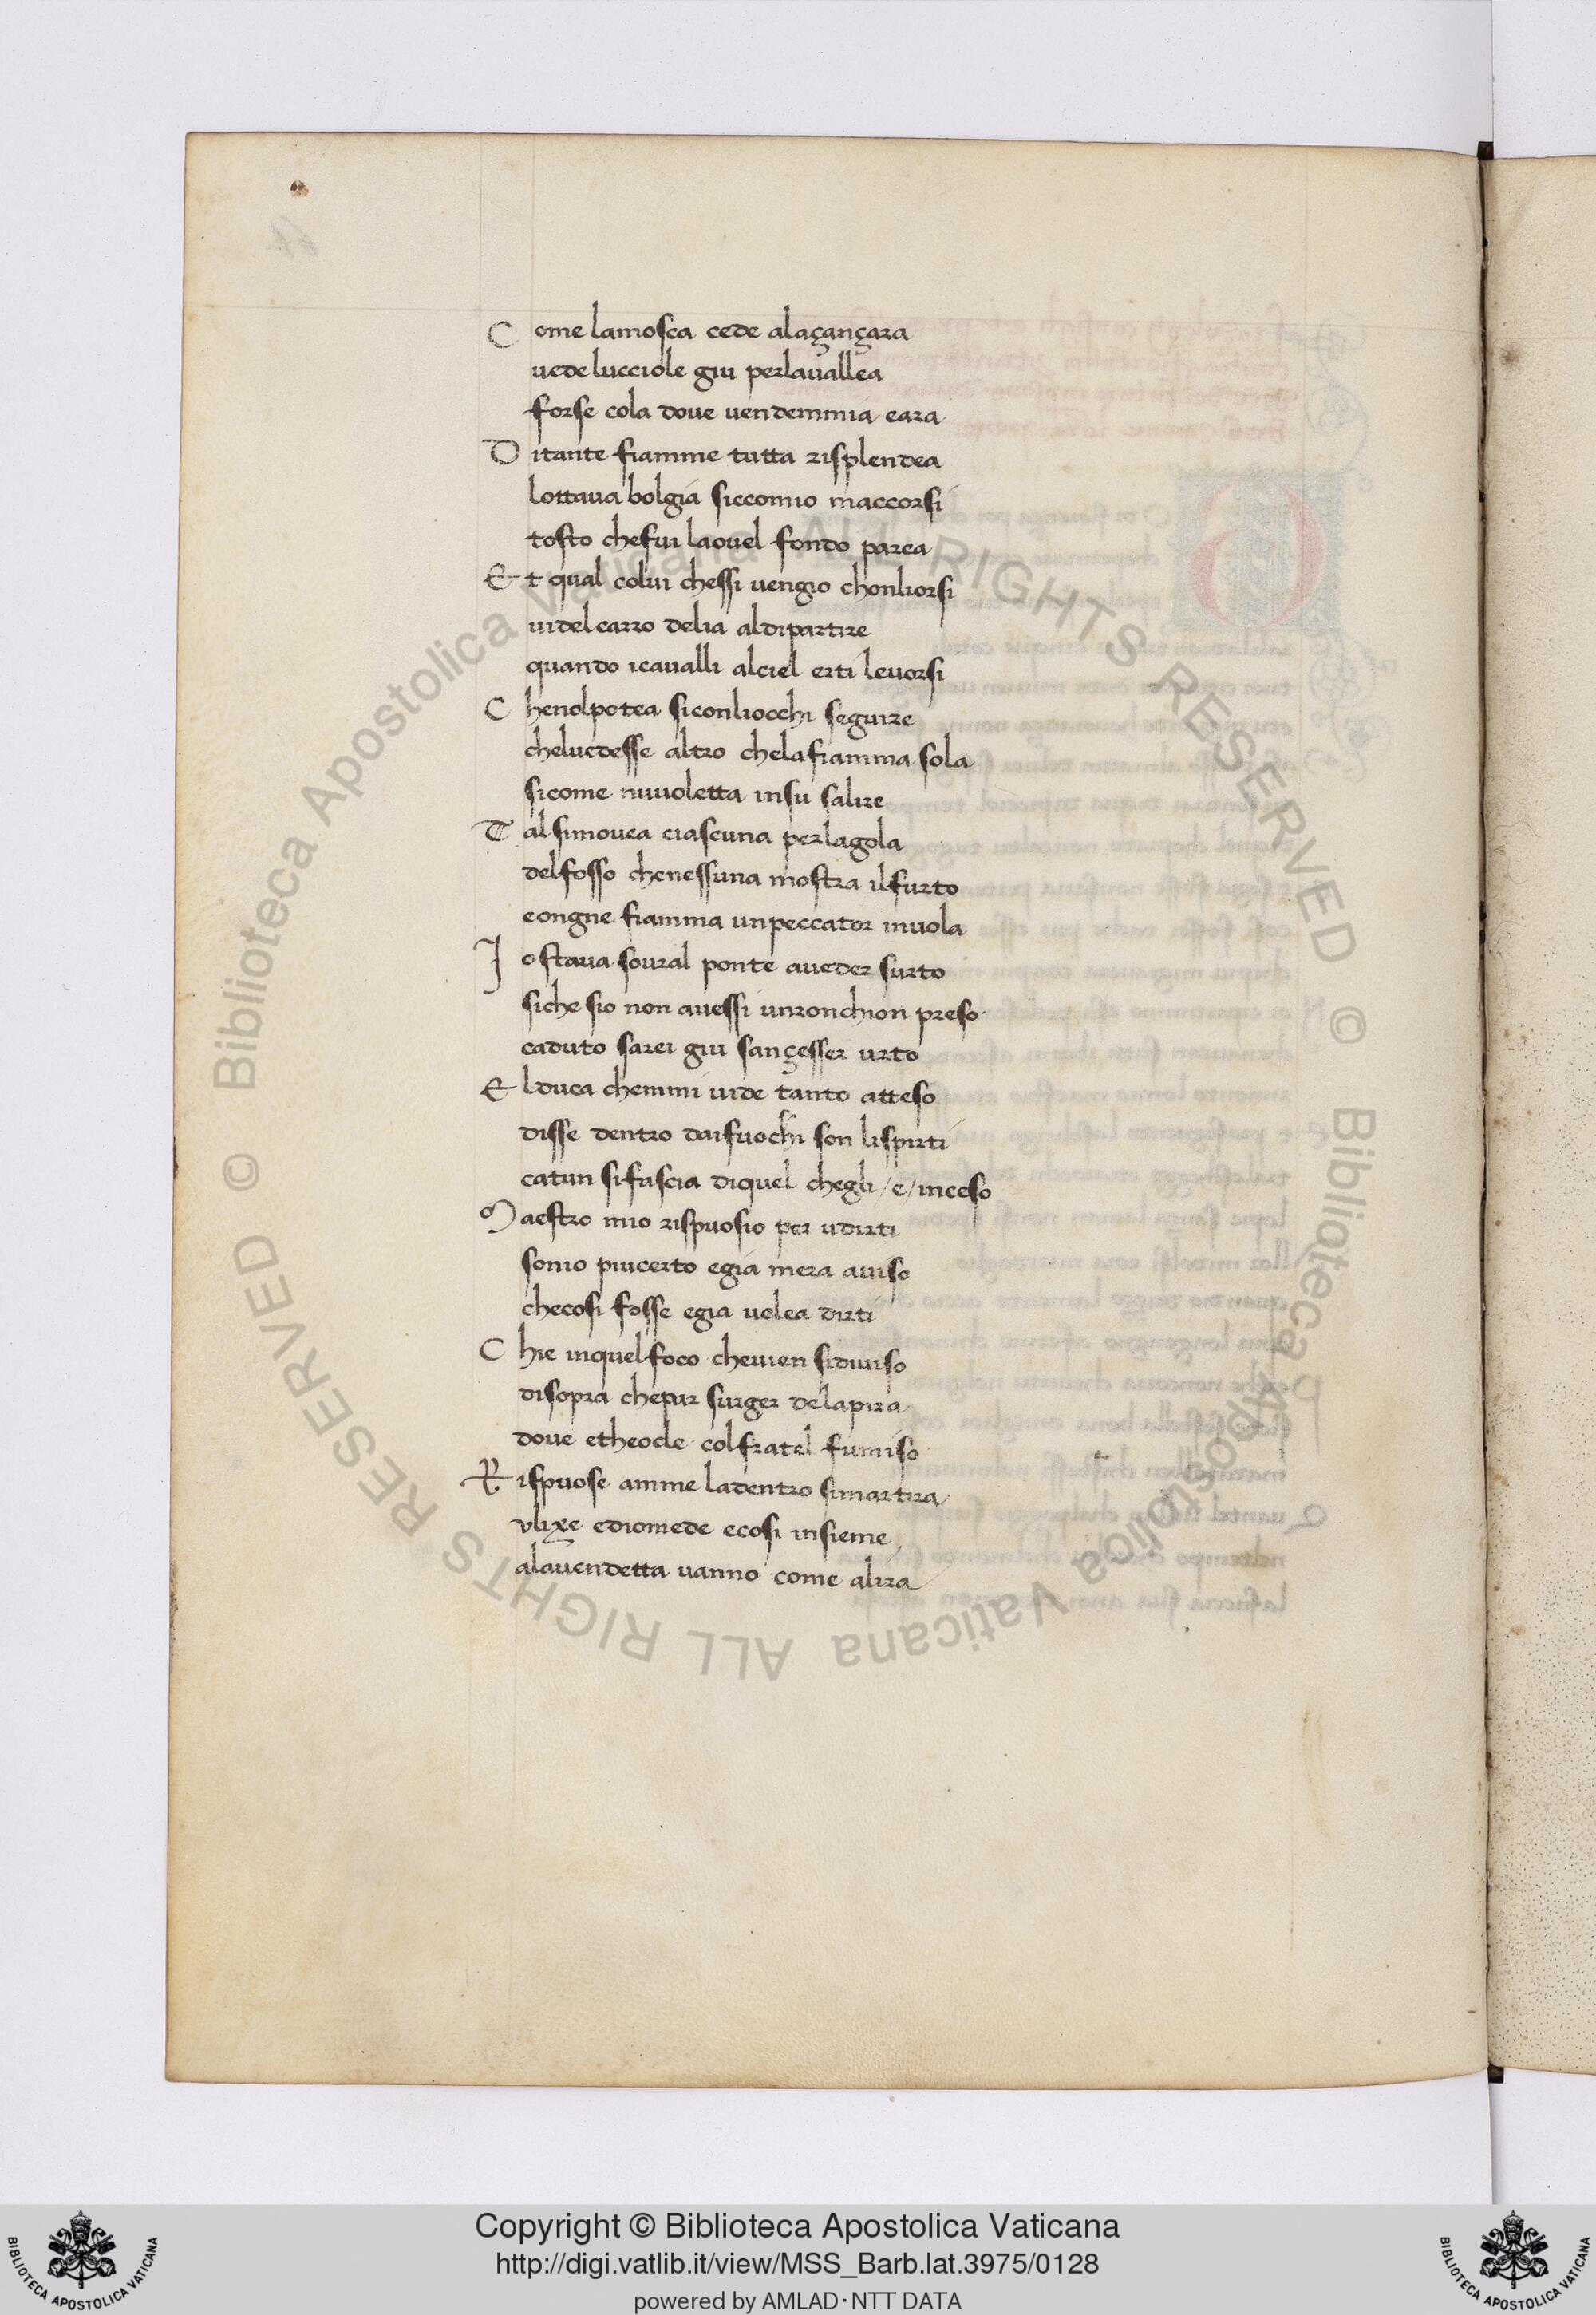 Come lamosca cede alaçançara
uede lucciole giu perlauallea
forse cola doue uendemmia eara
Ditante fiamme tutta risplendea
lottaua bolgia siccomio maccorsi
tosto chefui laouel fondo parea
Et qual colui chessi uengio chonliorsi
uidel carro delia aldipartire
quando icaualli alciel erti leuorsi
Chenolpotea siconliocchi seguire
cheluedesse altro chelafiamma sola
sicome nuuoletta insu salire
Tal simouea ciascuna perlagola
delfosso chenessuna mostra ilfurto
eongne fiamma unpeccator inuola
Io staua soural ponte aueder surto
siche sio non auessi unronchion preso
caduto sarei giu sançesser urto
Elduca chemmi uide tanto atteso
disse dentro daifuochi son lispirti
catun sifascia diquel chegli/e/inceso
Maestro mio rispuosio per udirti
sonio piucerto egia mera auiso
checosi fosse egia uolea dirti
Chie inquelfoco cheuien sidiuiso
disopra chepar surger delapira
doue etheocle colfratel fumiso
Rispuose amme ladentro simartira
vlixe ediomede ecosi insieme
alauendetta uanno come alira
© Biblioteca Apostolica Vaticana ALL RIGHTS RESERVED © Biblioteca Apostolica Vaticana ALL RIGHTS RESERVED
Copyright © Biblioteca Apostolica Vaticana
http://digi.vatlib.it/view/MSS_Barb.lat.3975/0128
powered by AMLAD·NTT DATA
BIBLIOTECA APOSTOLICA VATICANA
BIBLIOTECA APOSTOLICA VATICANA